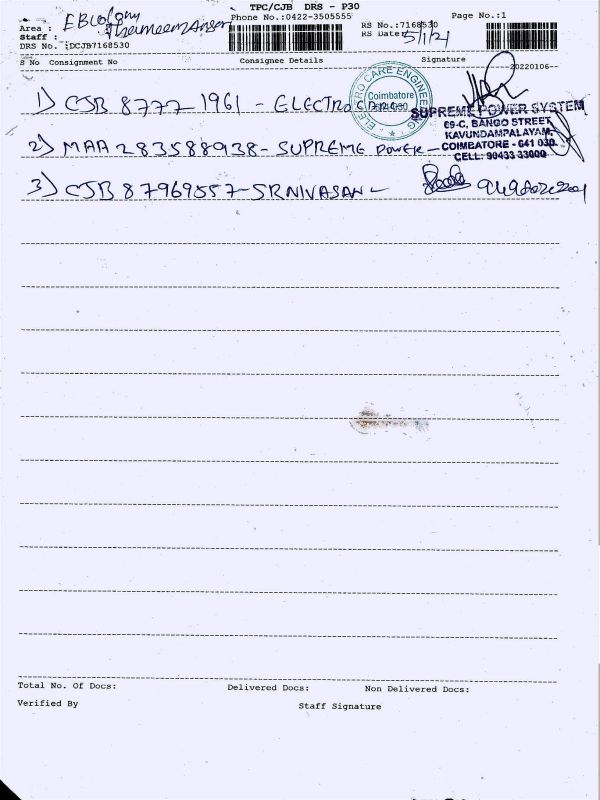 TPC/CJB DRS - P30
Phone No.:0422-3505555
Page No.:1
Area : EB Colony
Staff : Thameem Ansar
DRS No. :DCJB7168530
RS No.:7168530
RS Date: 5/1/21
S No Consignment No Consignee Details Signature
20220106
1) CJB 8777 1961 - ELECTRO CARE
ELECTRO CARE ENGINEERING
Coimbatore
SUPREME POWER SYSTEM
69-C, BANGO STREET,
KAVUNDAMPALAYAM,
COIMBATORE - 641 030.
CELL: 90433 33000
2) MAA 283588938 - SUPREME POWER -
3) CJB 87969557 - SRNIVASAN -
Total No. Of Docs: Delivered Docs: Non Delivered Docs:
Verified By Staff Signature